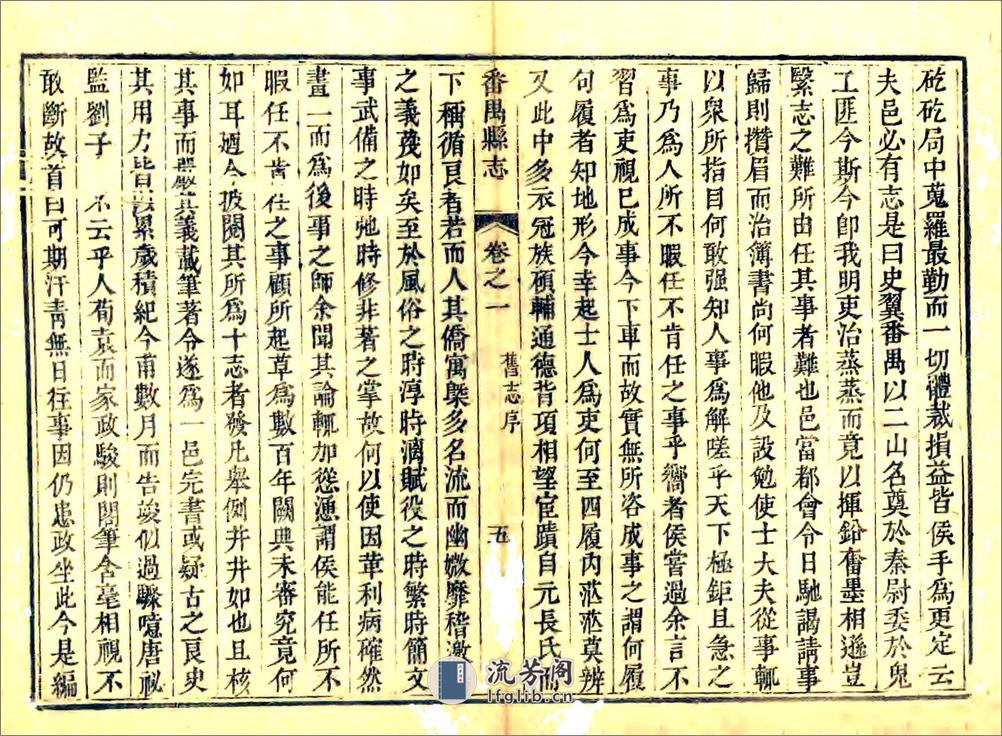 矻矻局中蒐羅最勤而一切體裁損益皆侯手爲更定云
夫邑必有志是曰史翼番禺以二山名奠於秦尉委於兒
工匪今斯今卽我明吏治蒸蒸而竟以揮鉛奮墨相遜豈
繄志之難所由任其事者難也邑當都會令日馳謁請事
歸則攢眉而治簿書尚何暇他及設勉使士大夫從事輒
以衆所指目何敢强知人事爲解嗟乎天下極鉅且急之
事乃爲人所不暇任不肯任之事乎嚮者侯嘗過余言不
習爲吏視巳成事今下車而故實無所咨成事之謂何履
句履者知地形今幸起士人爲吏何至四履內茫茫莫辨
又此中多衣冠族碩輔通德背項相望宦蹟自元長氏而
番禺縣志
卷之一
舊志序
五
下稱循良者若而人其僑寓槩多名流而幽媺靡稽激
之義蔑如矣至於風俗之時淳時漓賦役之時繁時簡文
事武備之時弛時修非著之掌故何以使因革利病確然
畫一而爲後事之師余聞其論輒加慫慂謂侯能任所不
暇任不肯任之事顧所起草爲數百年闕典未審究竟何
如耳廼今披閱其所爲十志者發凡舉例井井如也且核
其事而嚴其義載筆著令遂爲一邑完書或疑古之良史
其用力皆累歲積紀今甫數月而告竣似過驟噫唐祕
監劉子不云乎人荀袁而家政駿則閣筆含毫相視不
敢斷故首白可期汗靑無日往事因仍患政坐此今是編
流芳閣
lfglib.cn